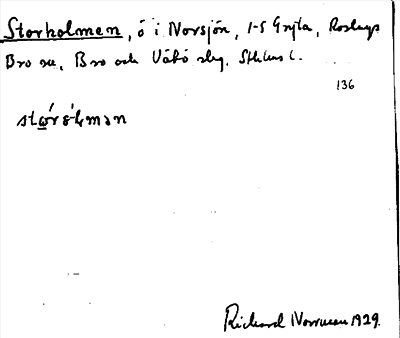 Storholmen, ö i Norsjön, 1-5 Gryta, Roslags
Bro sn, Bro och Vätö skg. Sthlms l.
136
Richard Norrman 1929.